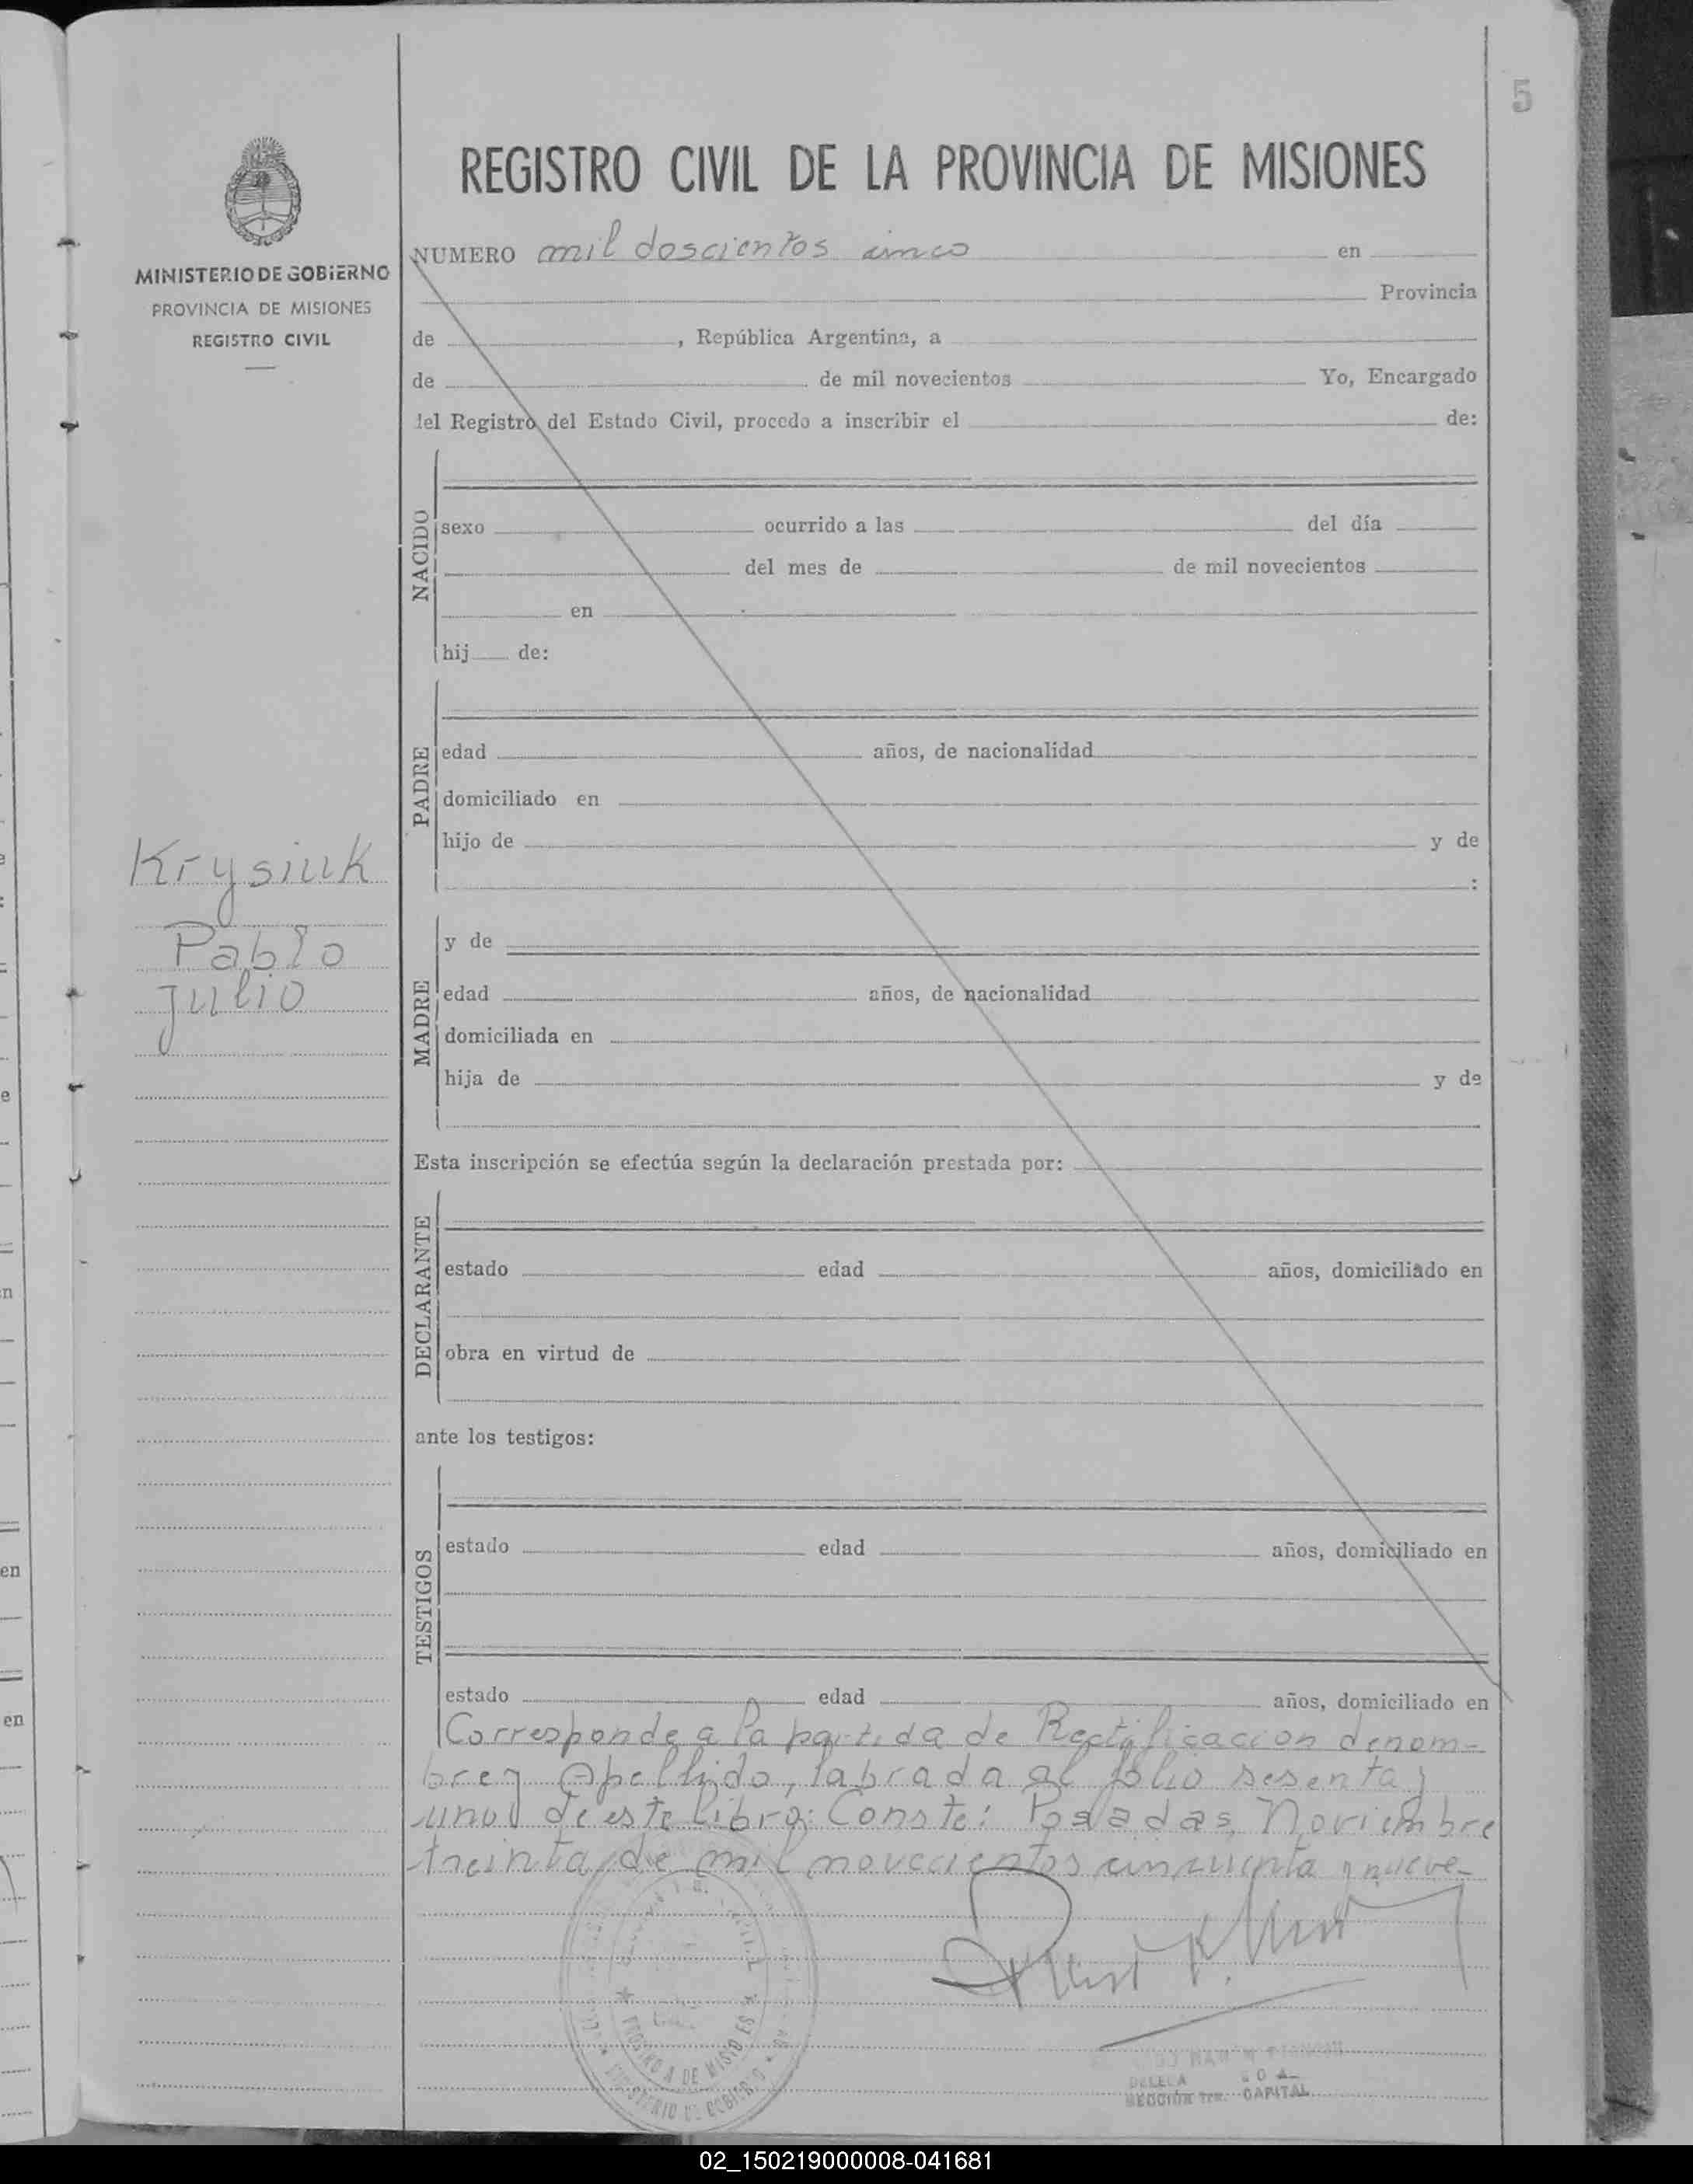 5
MINISTERIO DE GOBIERNO
PROVINCIA DE MISIONES
REGISTRO CIVIL
Krysiuk
Pablo
Julio
REGISTRO CIVIL DE LA PROVINCIA DE MISIONES
NUMERO mil doscientos cinco en
Provincia
de , República Argentina, a
de de mil novecientos Yo, Encargado
del Registro del Estado Civil, procedo a inscribir el de:
NACIDO
sexo ocurrido a las del día
del mes de de mil novecientos
en
hij de:
PADRE
edad años, de nacionalidad
domiciliado en
hijo de y de
:
MADRE
y de
edad años, de nacionalidad
domiciliada en
hija de y de
Esta inscripción se efectúa según la declaración prestada por:
DECLARANTE
estado edad años, domiciliado en
obra en virtud de
ante los testigos:
TESTIGOS
estado edad años, domiciliado en
estado edad años, domiciliado en
Corresponde a la partida de Rectificacion de nom-
bre y Apellido, labrada al folio sesenta y
uno de este libro: Conste: Posadas, Noviembre
treinta de mil novecientos cincuenta y nueve-
PROVINCIA DE MISIONES
MINISTERIO DE GOBIERNO
SECCIÓN 1ra. CAPITAL
02_150219000008-041681